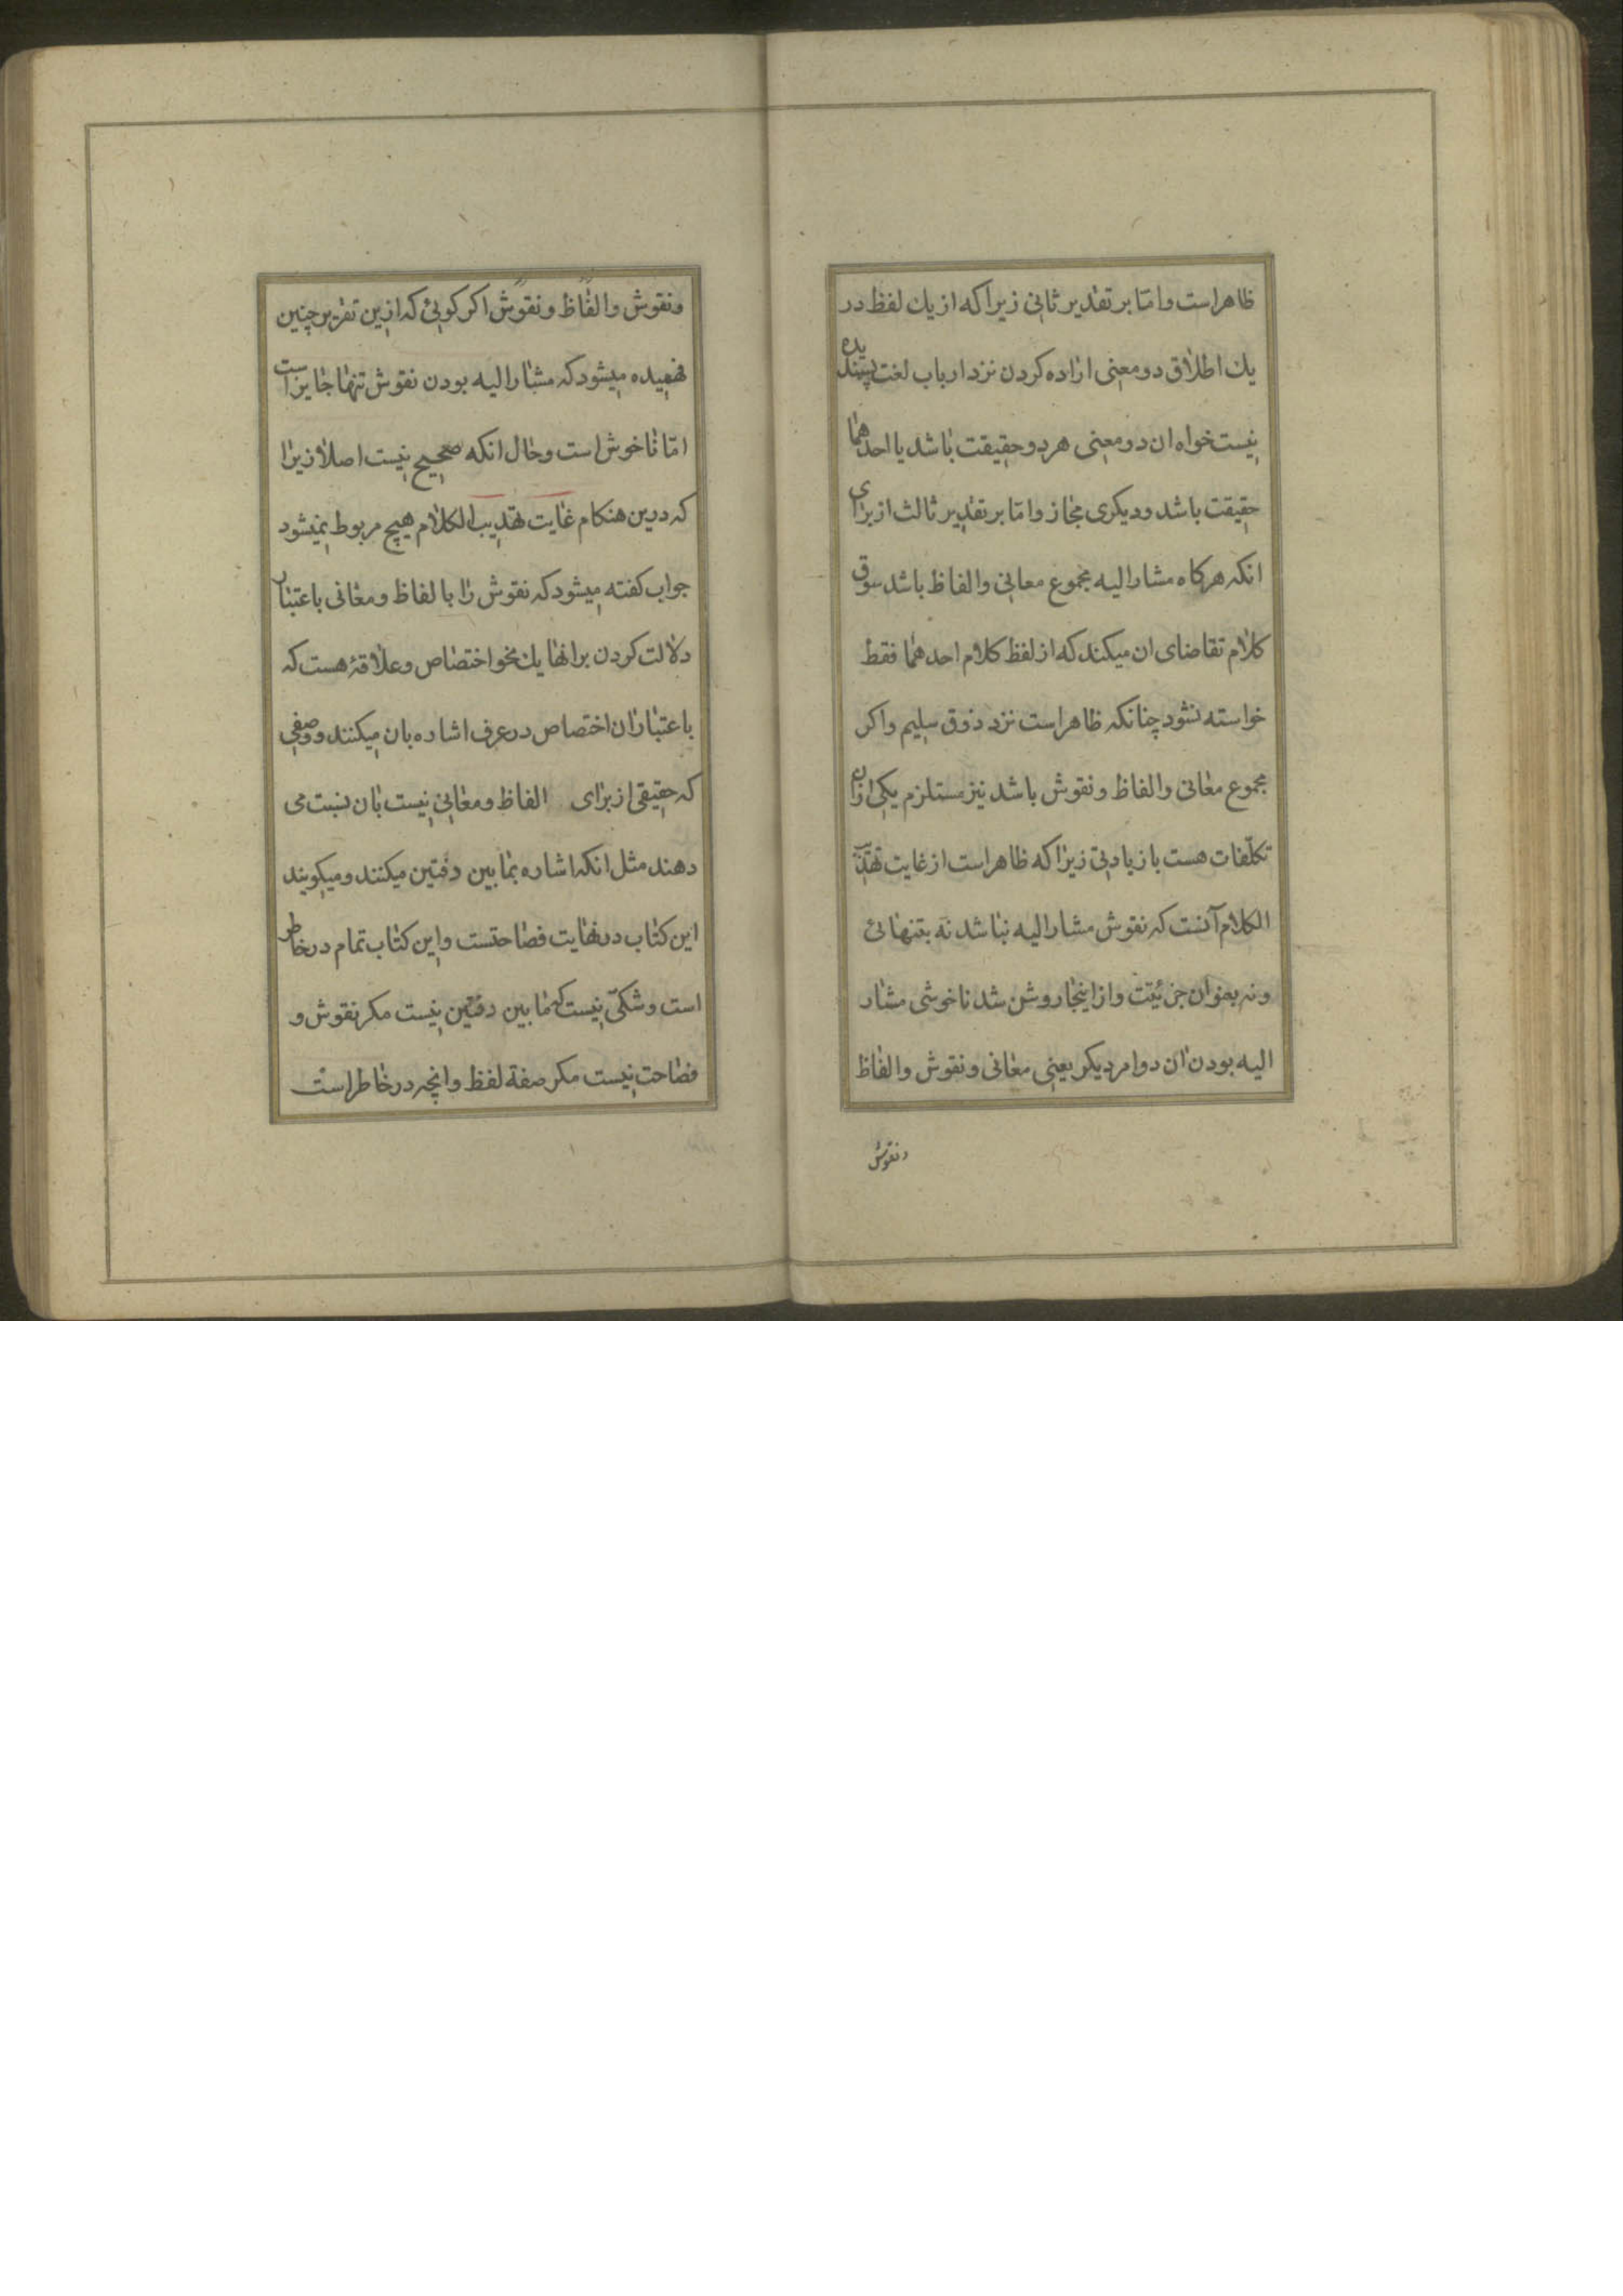 ظاهراست واما بر تقدیر ثانی زیرا که از یك لفظ در
یك اطلاق دو معنی اراده کردن نزد ارباب لغت پسندیده
نیست خواه ان دو معنی هر دو حقیقت باشد یا احدهما
حقیقت باشد ودیکری مجاز واما بر تقدیر ثالث از برای
انکه هرکاه مشار الیه مجموع معانی والفاظ باشد سوق
کلام تقاضای ان میکند که از لفظ کلام احدهما فقط
خواسته نشود چنانکه ظاهراست نزد ذوق سلیم واکر
مجموع معانی والفاظ ونقوش باشد نیز مستلزم یکی ازان
تکلّفات هست با زیادتی زیرا که ظاهراست از غایت تهذیب
الکلام آنست که نقوش مشار الیه نباشد نه بتنهائی
ونه بعنوان جزئیّت وازاینجا روشن شد ناخوشی مشار
الیه بودن ان دوامر دیکر یعنی معانی ونقوش والفاظ
ونقوش
ونقوش والفاظ ونقوش اکر کوئی که ازین تقریر چنین
فهمیده میشود که مشار الیه بودن نقوش تنها جایز است
امّا ناخوش است وحال انکه صحیح نیست اصلا زیرا
که درین هنکام غایت تهذیب الکلام هیچ مربوط نمیشود
جواب کفته میشود که نقوش را با لفاظ ومعانی باعتبار
دلالت کردن برانها یك نحو اختصاص وعلاقۀ هست که
باعتباران اختصاص درعرف اشاره بان میکنند ووصفی
که حقیقی از برای الفاظ ومعانی نیست بان نسبت می
دهند مثل انکه اشاره بمابین دفتین میکنند ومیکویند
این کتاب درنهایت فصاحتست واین کتاب تمام درخاطر
است وشکّی نیست که مابین دفتین نیست مکر نقوش و
فصاحت نیست مکر صفة لفظ وانچه درخاطراست